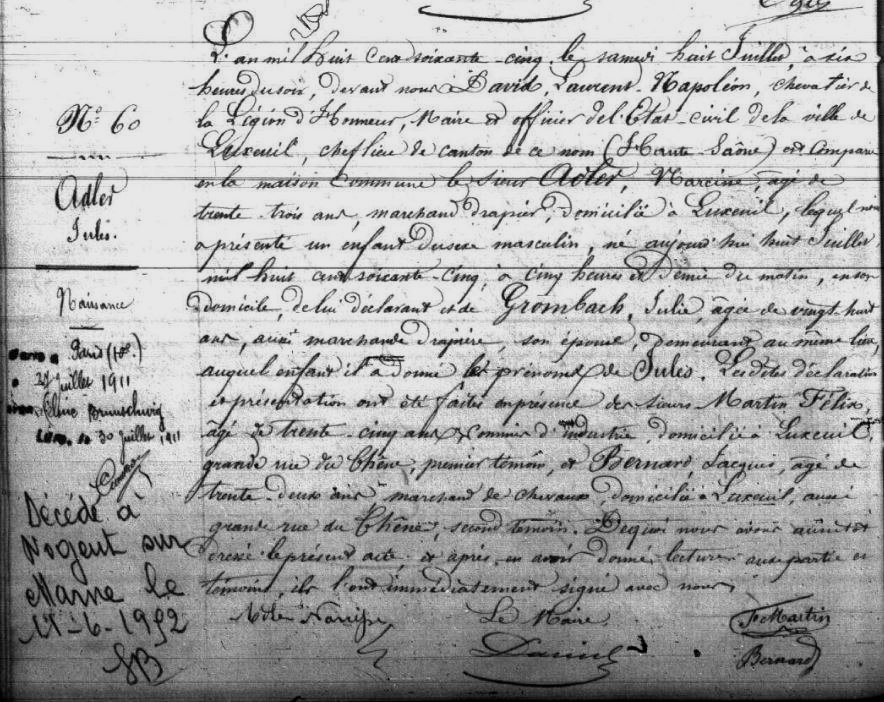 L'an mil huit cent soixante-cinq, le samedi huit Juillet, à six
heures du soir, devant nous David, Laurent-Napoléon, chevalier de
la Légion d'Honneur, Maire et officier de l'Etat civil de la ville de
Luxeuil, chef lieu de canton de ce nom (Haute Saône) est comparu
en la maison commune le sieur Adler, Narcisse, âgé de
trente-trois ans, marchand drapier, domicilié à Luxeuil, lequel nous
a présenté un enfant du sexe masculin, né aujourd'hui huit Juillet
mil huit cent soixante-cinq, à cinq heures et demie du matin, en son
domicile, de lui déclarant et de Grombach, Julie, âgée de vingt-huit
ans, aussi marchande drapière, son épouse, demeurant au même lieu,
auquel enfant il a donné le prénom de Jules. Les dites déclaration
et présentation ont été faites en présence des sieurs Martin Félix,
âgé de trente-cinq ans, commis d'industrie, domicilié à Luxeuil,
grande rue du Chêne, premier témoin, et Bernard, Jacques, âgé de
trente-deux ans, marchand de chevaux, domicilié à Luxeuil, aussi
grande rue du Chêne, second témoin. De quoi nous avons aussitôt
dressé le présent acte, et après en avoir donné lecture aux partie et
témoins, ils l'ont immédiatement signé avec nous.
Adler Narcisse
Le Maire
David
F. Martin
Bernard
N° 60
Adler
Jules.
Naissance
Paris (10e.)
27 Juillet 1911
Céline Brunschwig
30 Juillet 1911
Décédé à
Nogent sur
Marne le
11-6-1952
SB